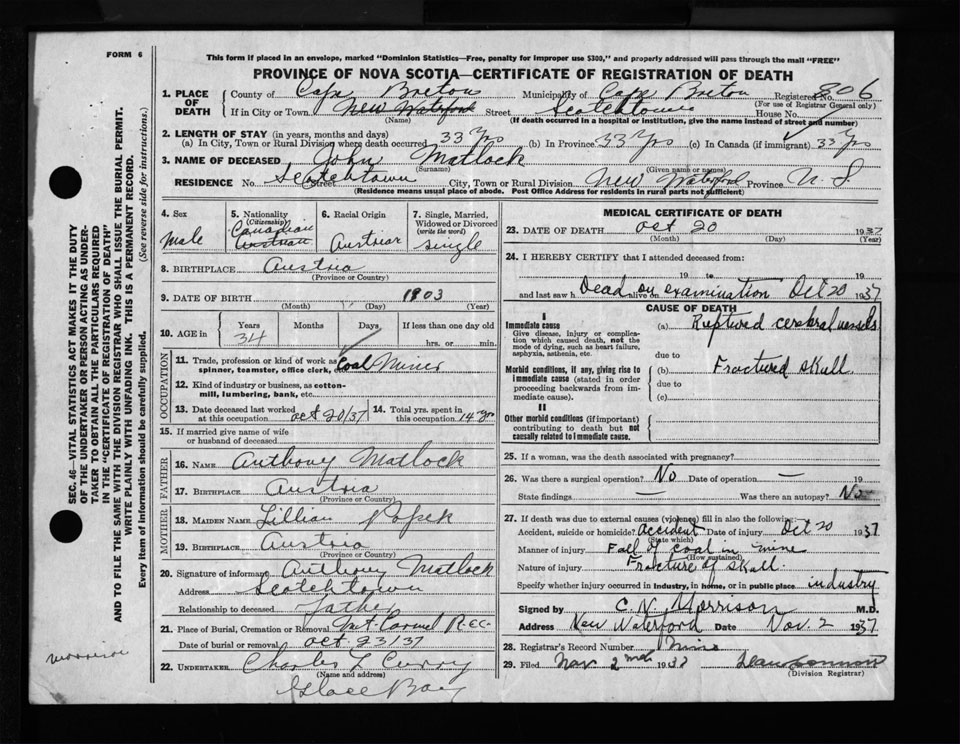 FORM 6
This form if placed in an envelope, marked "Dominion Statistics—Free, penalty for improper use $300," and properly addressed will pass through the mail "FREE"
PROVINCE OF NOVA SCOTIA—CERTIFICATE OF REGISTRATION OF DEATH
SEC. 46—VITAL STATISTICS ACT MAKES IT THE DUTY
OF THE UNDERTAKER OR PERSON ACTING AS UNDER-
TAKER TO OBTAIN ALL THE PARTICULARS REQUIRED
IN THE "CERTIFICATE OF REGISTRATION OF DEATH"
AND TO FILE THE SAME WITH THE DIVISION REGISTRAR WHO SHALL ISSUE THE BURIAL PERMIT.
WRITE PLAINLY WITH UNFADING INK. THIS IS A PERMANENT RECORD.
Every item of information should be carefully supplied. (See reverse side for instructions.)
1. PLACE OF DEATH County of Cape Breton Municipality of Cape Breton Registered No. 806
(For use of Registrar General only)
If in City or Town New Waterford Street Scotchtown House No.
(Name) (If death occurred in a hospital or institution, give the name instead of street and number)
2. LENGTH OF STAY (in years, months and days)
(a) In City, Town or Rural Division where death occurred 33 Yrs (b) In Province 33 Yrs (c) In Canada (if immigrant) 33 Yrs
3. NAME OF DECEASED John Matlock
(Surname) (Given name or names)
RESIDENCE No. Scotchtown Street City, Town or Rural Division New Waterford Province N.S
(Residence means usual place of abode. Post Office Address for residents in rural parts not sufficient)
4. Sex
Male
5. Nationality
(Citizenship)
Canadian
6. Racial Origin
Austrian
7. Single, Married,
Widowed or Divorced
(write the word)
Single
8. BIRTHPLACE Austria
(Province or Country)
9. DATE OF BIRTH 1903
(Month) (Day) (Year)
10. AGE in Years Months Days If less than one day
34 hrs. or min.
OCCUPATION
11. Trade, profession or kind of work as
spinner, teamster, office clerk, etc. Coal Miner
12. Kind of industry or business, as cotton-
mill, lumbering, bank, etc.
13. Date deceased last worked
at this occupation Oct 20/37
14. Total yrs. spent in
this occupation 14 yr
15. If married give name of wife
or husband of deceased
FATHER
16. NAME Anthony Matlock
17. BIRTHPLACE Austria
(Province or Country)
MOTHER
18. MAIDEN NAME Lillian Popek
19. BIRTHPLACE Austria
(Province or Country)
20. Signature of informant Anthony Matlock
Address Scotchtown
Relationship to deceased Father
21. Place of Burial, Cremation or Removal Mt. Carmel R.E.C.
Date of burial or removal Oct 23/37
22. UNDERTAKER Charles L Curry
(Name and address)
Glace Bay
MEDICAL CERTIFICATE OF DEATH
23. DATE OF DEATH Oct 20 1937
(Month) (Day) (Year)
24. I HEREBY CERTIFY that I attended deceased from:
19 to 19
and last saw h alive on Dead on examination Oct 20 1937
CAUSE OF DEATH
I
Immediate cause
Give disease, injury or complica-
tion which caused death, not the
mode of dying, such as heart failure,
asphyxia, asthenia, etc.
(a) Ruptured cerebral vessels
due to
Morbid conditions, if any, giving rise to
immediate cause (stated in order
proceeding backwards from im-
mediate cause).
(b) Fractured skull.
due to
(c)
II
Other morbid conditions (if important)
contributing to death but not
causally related to immediate cause.
25. If a woman, was the death associated with pregnancy?
26. Was there a surgical operation? No Date of operation — 19
State findings — Was there an autopsy? No
27. If death was due to external causes (violence) fill in also the following:
Accident, suicide or homicide? Accident Date of injury Oct 20 1937
(State which)
Manner of injury Fall of coal in mine
(How sustained)
Nature of injury Fracture of skull.
Specify whether injury occurred in Industry, in home, or in public place industry
Signed by C. N. Morrison M.D.
Address New Waterford Date Nov. 2 1937
28. Registrar's Record Number
29. Filed Nov 2nd
(Division Registrar)